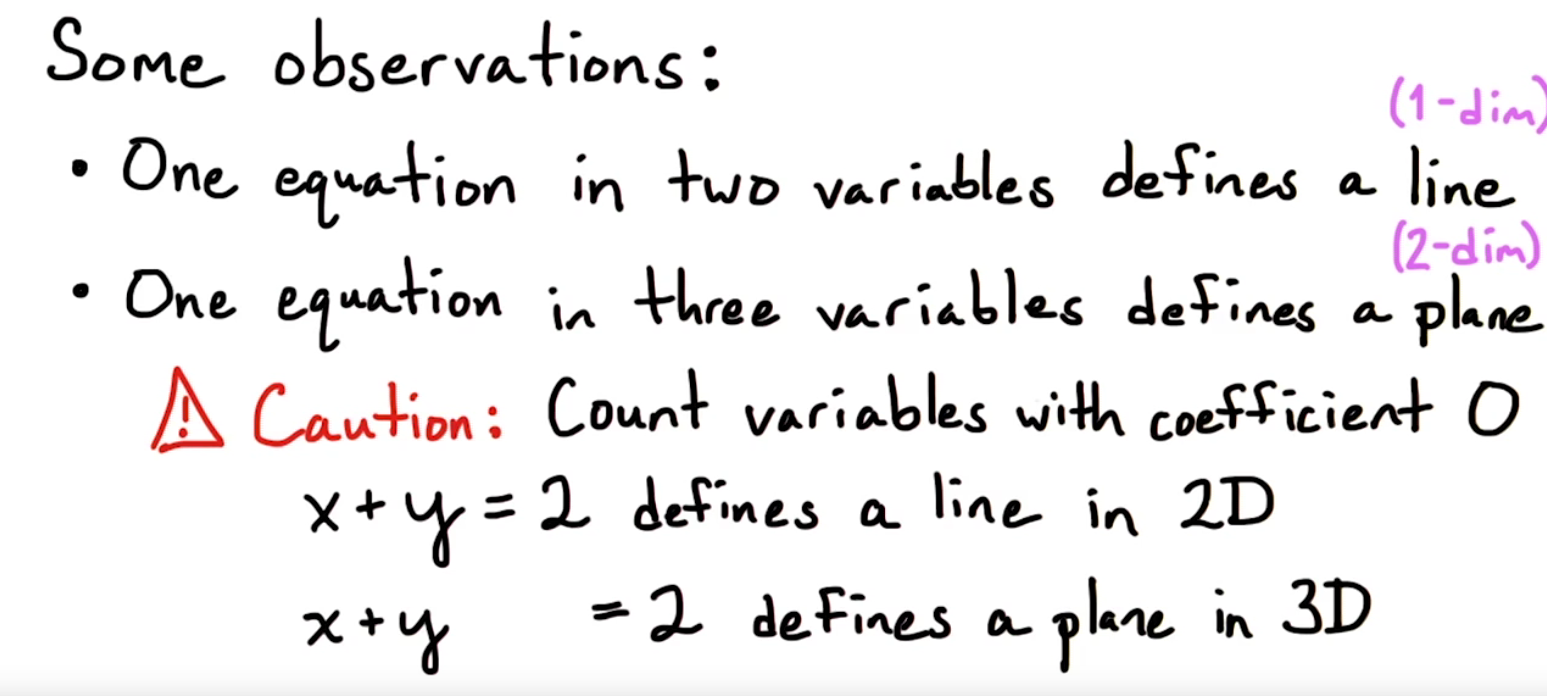 Some observations:
(1-dim)
• One equation in two variables defines a line
(2-dim)
• One equation in three variables defines a plane
⚠ Caution: Count variables with coefficient 0
x+y=2 defines a line in 2D
x+y =2 defines a plane in 3D